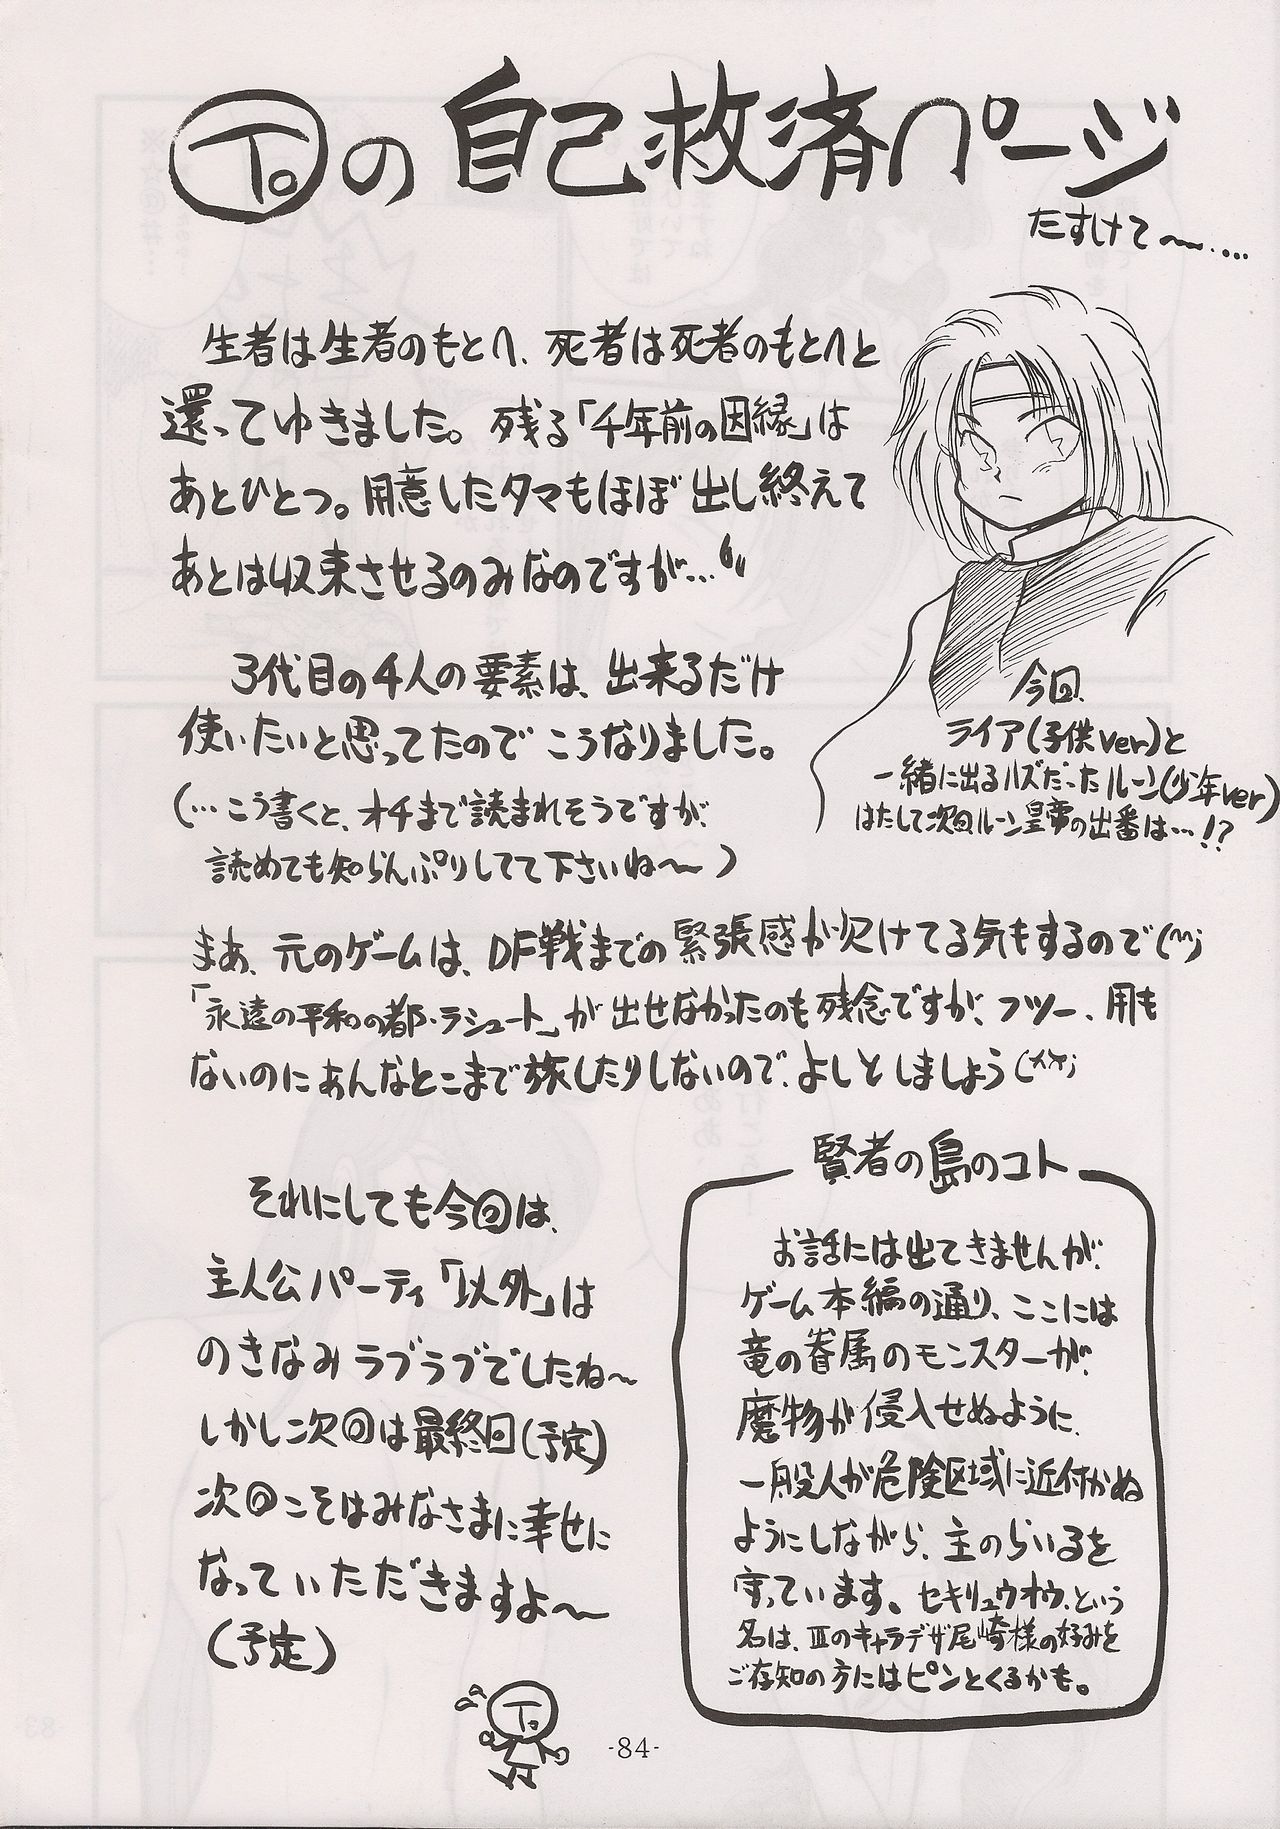 To の 自己救済ページ
たすけて〜....
生者は生者のもとへ、死者は死者のもとへと
還ってゆきました。残る「千年前の因縁」は
あとひとつ。用意したタマもほぼ出し終えて
あとは収束させるのみなのですが…
3代目の4人の要素は、出来るだけ
使いたいと思ってたのでこうなりました。
(…こう書くと、オチまで読まれそうですが、
読めても知らんぷりしてて下さいね〜)
今回、
ライア(子供ver)と
一緒に出るハズだったルーン(少年ver)
はたして次回ルーン皇帝の出番は…!?
まあ、元のゲームは、DF戦までの緊張感が欠けてる気もするので(^^;
「永遠の平和の都・ラシュート」が出せなかったのも残念ですが、フツー、用も
ないのにあんなとこまで旅したりしないので、よしとしましょう(^^;
それにしても今回は、
主人公パーティ「以外」は
のきなみラブラブでしたね〜
しかし次回は最終回(予定)
次回こそはみなさまに幸せに
なっていただきますよ〜
(予定)
To
賢者の島のコト
お話には出てきませんが、
ゲーム本編の通り、ここには
竜の眷属のモンスターが、
魔物が侵入せぬように、
一般人が危険区域に近付かぬ
ようにしながら、主のらいるを
守っています。セキリュウオウ、という
名は、Ⅲのキャラデザ尾崎様の好みを
ご存知の方にはピンとくるかも。
-84-